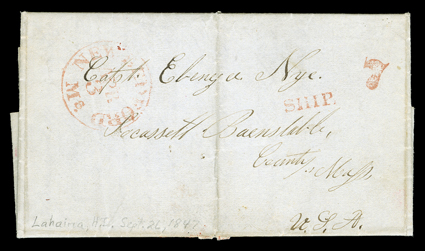 NEW BEDFORD Ms
5
Capt. Ebenr Nye.
SHIP.
Pocassett Barnstable,
County, Mass,
U. S. A.
Lahaina, H.I. Sept. 26, 1847